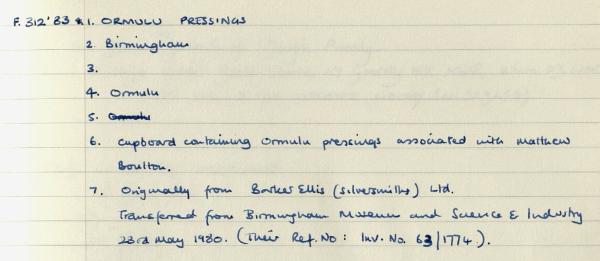 F. 312'83 1. ORMULU PRESSINGS
2 Birmingham
3.
4. Ormulu
5. Ormulu
6. Cupboard containing Ormulu pressings associated with Matthew
Boulton.
7. Originally from Barker Ellis (Silversmiths) Ltd.
Transferred from Birmingham Museum and Science & Industry
23rd May 1980. (Their Ref. No: Inv. No. 63/1774.).